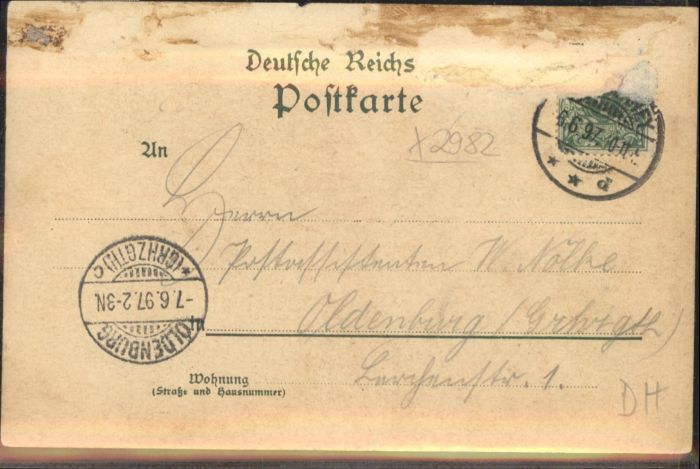 Deutsche Reichs
Postkarte
An
X2982
6.6.97.
Herrn
Postassistenten W. Nölke
Oldenburg (Grhrzgth)
Lerchenstr. 1.
Wohnung
(Straße und Hausnummer)
DH
OLDENBURG
-7.6.97.2-3N.
* (GRHZGTH) C